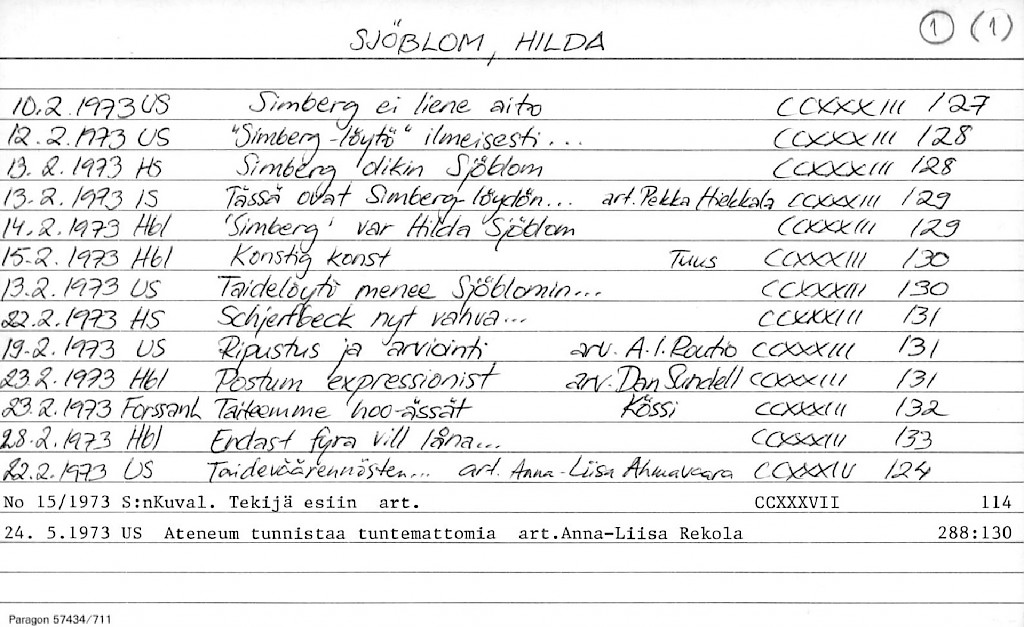 SJÖBLOM, HILDA 1 (1)
10.2.1973 US Simberg ei liene aito CCXXXIII /127
12.2.1973 US "Simberg-löytö" ilmeisesti... CCXXXIII /128
13.2.1973 HS Simberg olikin Sjöblom CCXXXIII /128
13.2.1973 IS Tässä ovat Simberg-löydön... art. Pekka Hiekkala CCXXXIII /129
14.2.1973 Hbl 'Simberg' var Hilda Sjöblom CCXXXIII /129
15.2.1973 Hbl Konstig konst Tuus CCXXXIII /130
13.2.1973 US Taidelöytö menee Sjöblomin... CCXXXIII /130
22.2.1973 HS Schjerfbeck nyt vahva... CCXXXIII /131
19.2.1973 US Ripustus ja arviointi arv. A.I. Routio CCXXXIII /131
23.2.1973 Hbl Postum expressionist arv. Dan Sundell CCXXXIII /131
23.2.1973 ForssanL Taiteemme hoo-ässät Kössi CCXXXIII /132
28.2.1973 Hbl Endast fyra vill låna... CCXXXIII /33
22.2.1973 US Taideväärennösten... art. Anna-Liisa Ahmavaara CCXXXIV 124
No 15/1973 S:nKuval. Tekijä esiin art. CCXXXVII 114
24. 5.1973 US Ateneum tunnistaa tuntemattomia art.Anna-Liisa Rekola 288:130
Paragon 57434/711